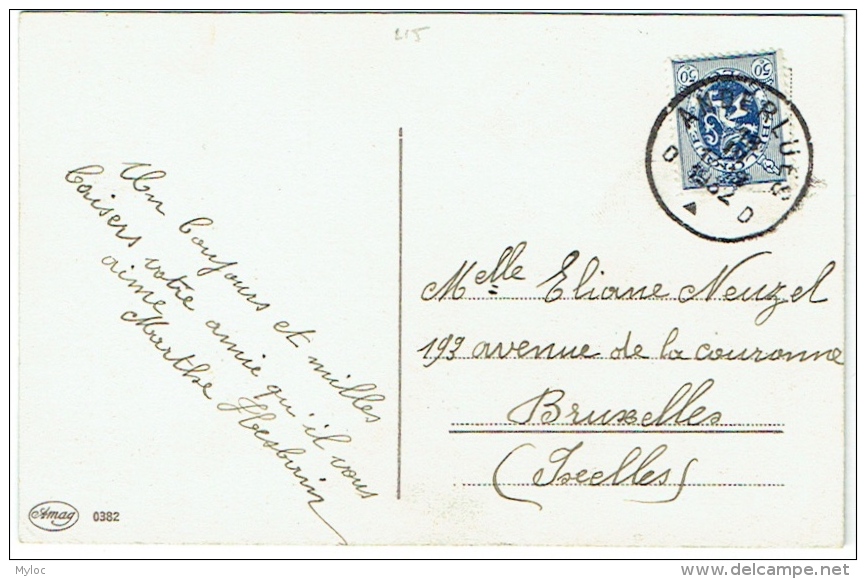 215
50 50
ANDERLUES
1932
D D
Un bonjours et milles
baisers votre amie qu'il vous
aime
Marthe Hesbrin
Melle Eliane Neuzel
193 avenue de la couronne
Bruxelles
(Ixelles)
Amag 0382
Myloc
www.delcampe.net